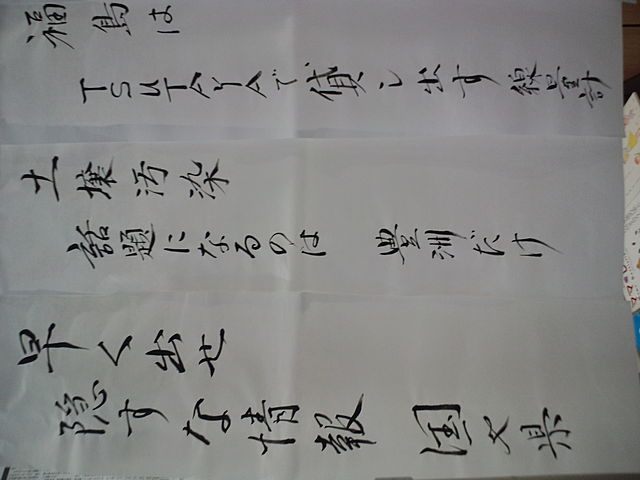 福島は
TSUTAYAで貸し出す線量計
土壌汚染
話題になるのは 豊洲だけ
早く出せ
隠すな情報 国と県